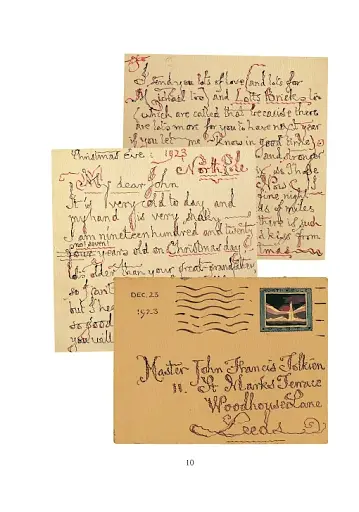 I send you lots of love (and lots for
Michael too) and Lotts Bricks too
(which are called that because there
are lots more for you to have next year
if you let me know in good time)
and stronger
Those
fine night
ds of miles
there is such
a kiss from
mas
Christmas Eve: 1923
North Pole
My dear John
It is very cold to day and
my hand is very shaky
I am nineteen hundred and twenty
no! seven!
four years old on Christmas day,
lots older than your great-grandfather
so I can't
but I hea
so good
you will
DEC. 23
1923
Master John Francis Tolkien
11. St Marks Terrace
Woodhouse Lane
Leeds
10